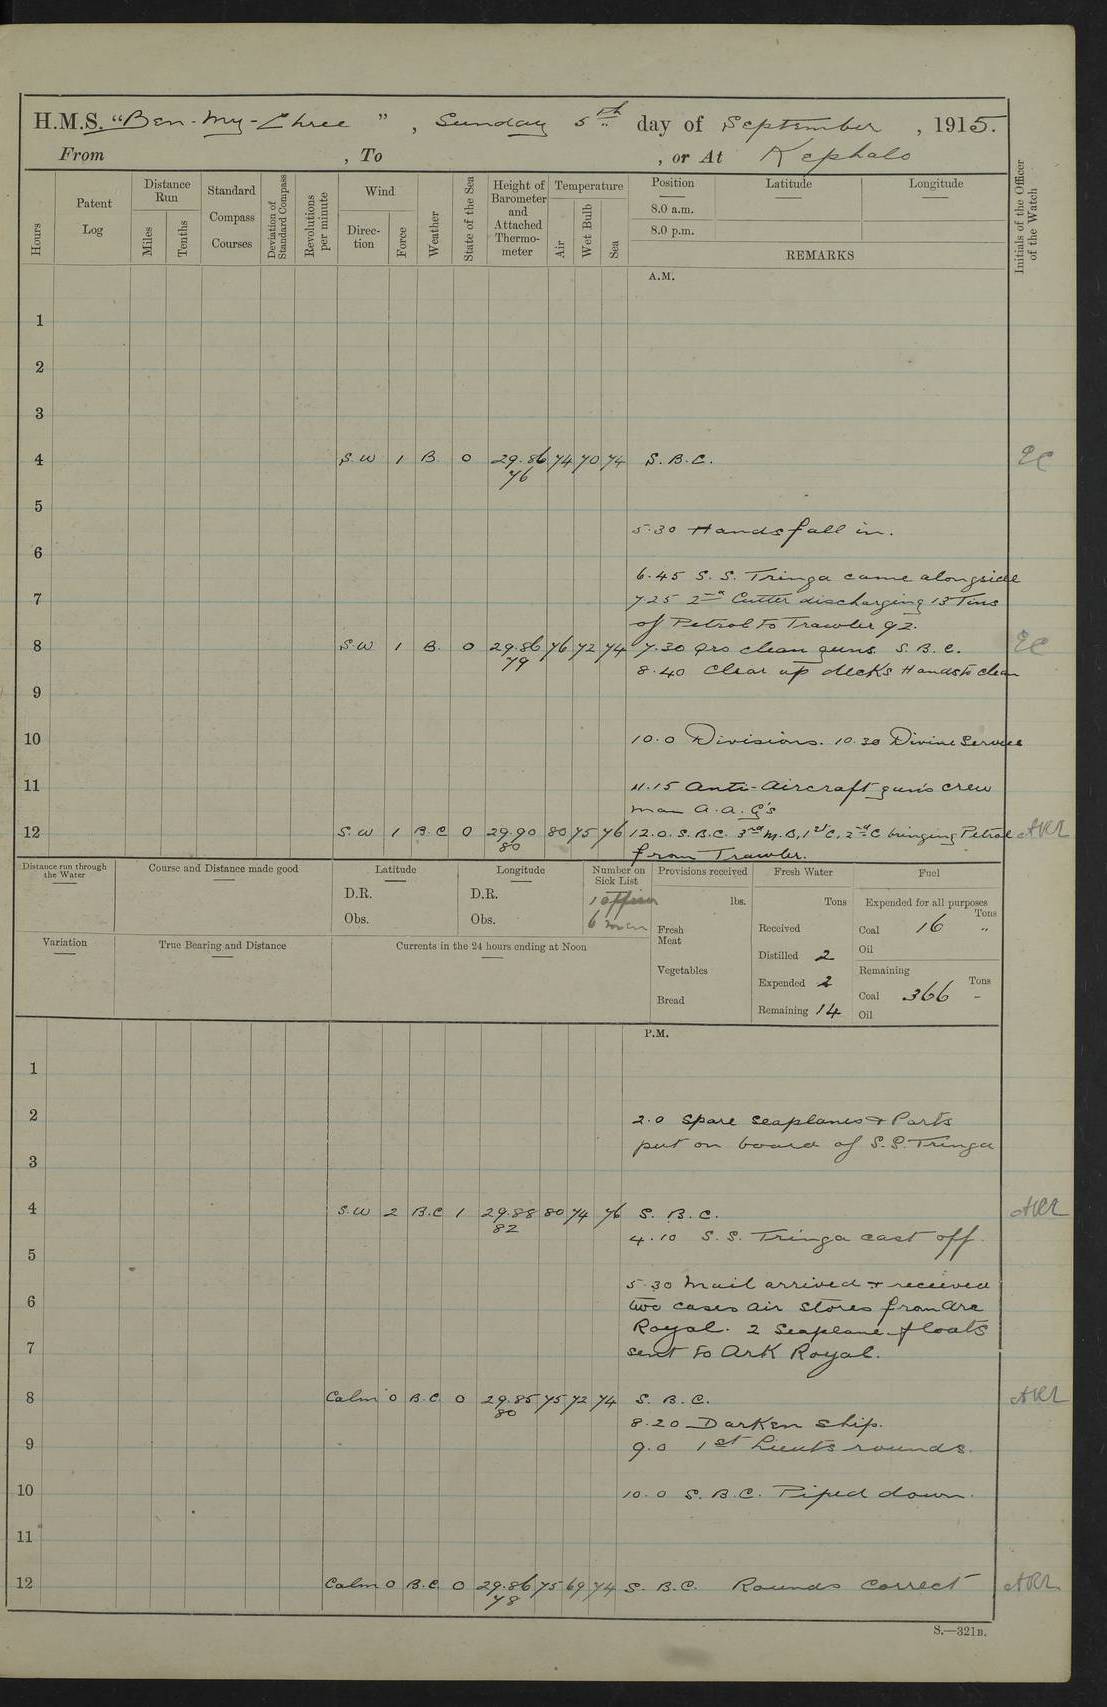 H.M.S. "Ben-My-Chree", Sunday 5th day of September, 1915.
From , To , or At Kephalo
Hours
Patent Log
Distance Run
Miles
Tenths
Standard Compass Courses
Deviation of Standard Compass
Revolutions per minute
Wind
Direction
Force
Weather
State of the Sea
Height of Barometer and Attached Thermometer
Temperature
Air
Wet Bulb
Sea
Position
Latitude
Longitude
8.0 a.m.
8.0 p.m.
REMARKS
Initials of the Officer of the Watch
A.M.
1
2
3
4 S.W 1 B 0 29.86 74 70 74 S.B.C. EC
76
5
5.30 Hands fall in.
6
6.45 S.S. Tringa came alongside
7 7.25 2nd Cutter discharging 13 Tins
of Petrol to Trawler 92.
8 S.W 1 B. 0 29.86 76 72 74 7.30 Qrs clean guns. S.B.C. EC
79
8.40 Clear up decks Hands to clean
9
10 10.0 Divisions. 10.30 Divine Service
11 11.15 Anti-Aircraft guns crew
man A.A. G's
12 S.W 1 B.C 0 29.90 80 75 76 12.0. S.B.C. 3rd M.B, 1st C, 2nd C bringing Petrol
80
from Trawler.
Distance run through the Water
Course and Distance made good
Latitude
D.R.
Obs.
Longitude
D.R.
Obs.
Number on Sick List
1 officer
6 men
Provisions received
lbs.
Fresh Meat
Vegetables
Bread
Fresh Water
Tons
Received
Distilled 2
Expended 2
Remaining 14
Fuel
Expended for all purposes
Tons
Coal 16 "
Oil
Remaining
Tons
Coal 366 -
Oil
Variation
True Bearing and Distance
Currents in the 24 hours ending at Noon
P.M.
1
2 2.0 Spare Seaplanes & Parts
put on board of S.S. Tringa
3
4 S.W 2 B.C 1 29.88 80 74 76 S.B.C.
82
4.10 S.S. Tringa cast off.
5
5.30 Mail arrived & received
6 two cases air stores from Ark
Royal. 2 Seaplane floats
7 sent to Ark Royal.
8 Calm 0 B.C. 0 29.85 75 72 74 S.B.C.
80
8.20 Darken ship.
9 9.0 1st Lieuts rounds.
10 10.0 S.B.C. Piped down.
11
12 Calm 0 B.C. 0 29.86 75 69 74 S.B.C. Rounds Correct
78
S.—321B.